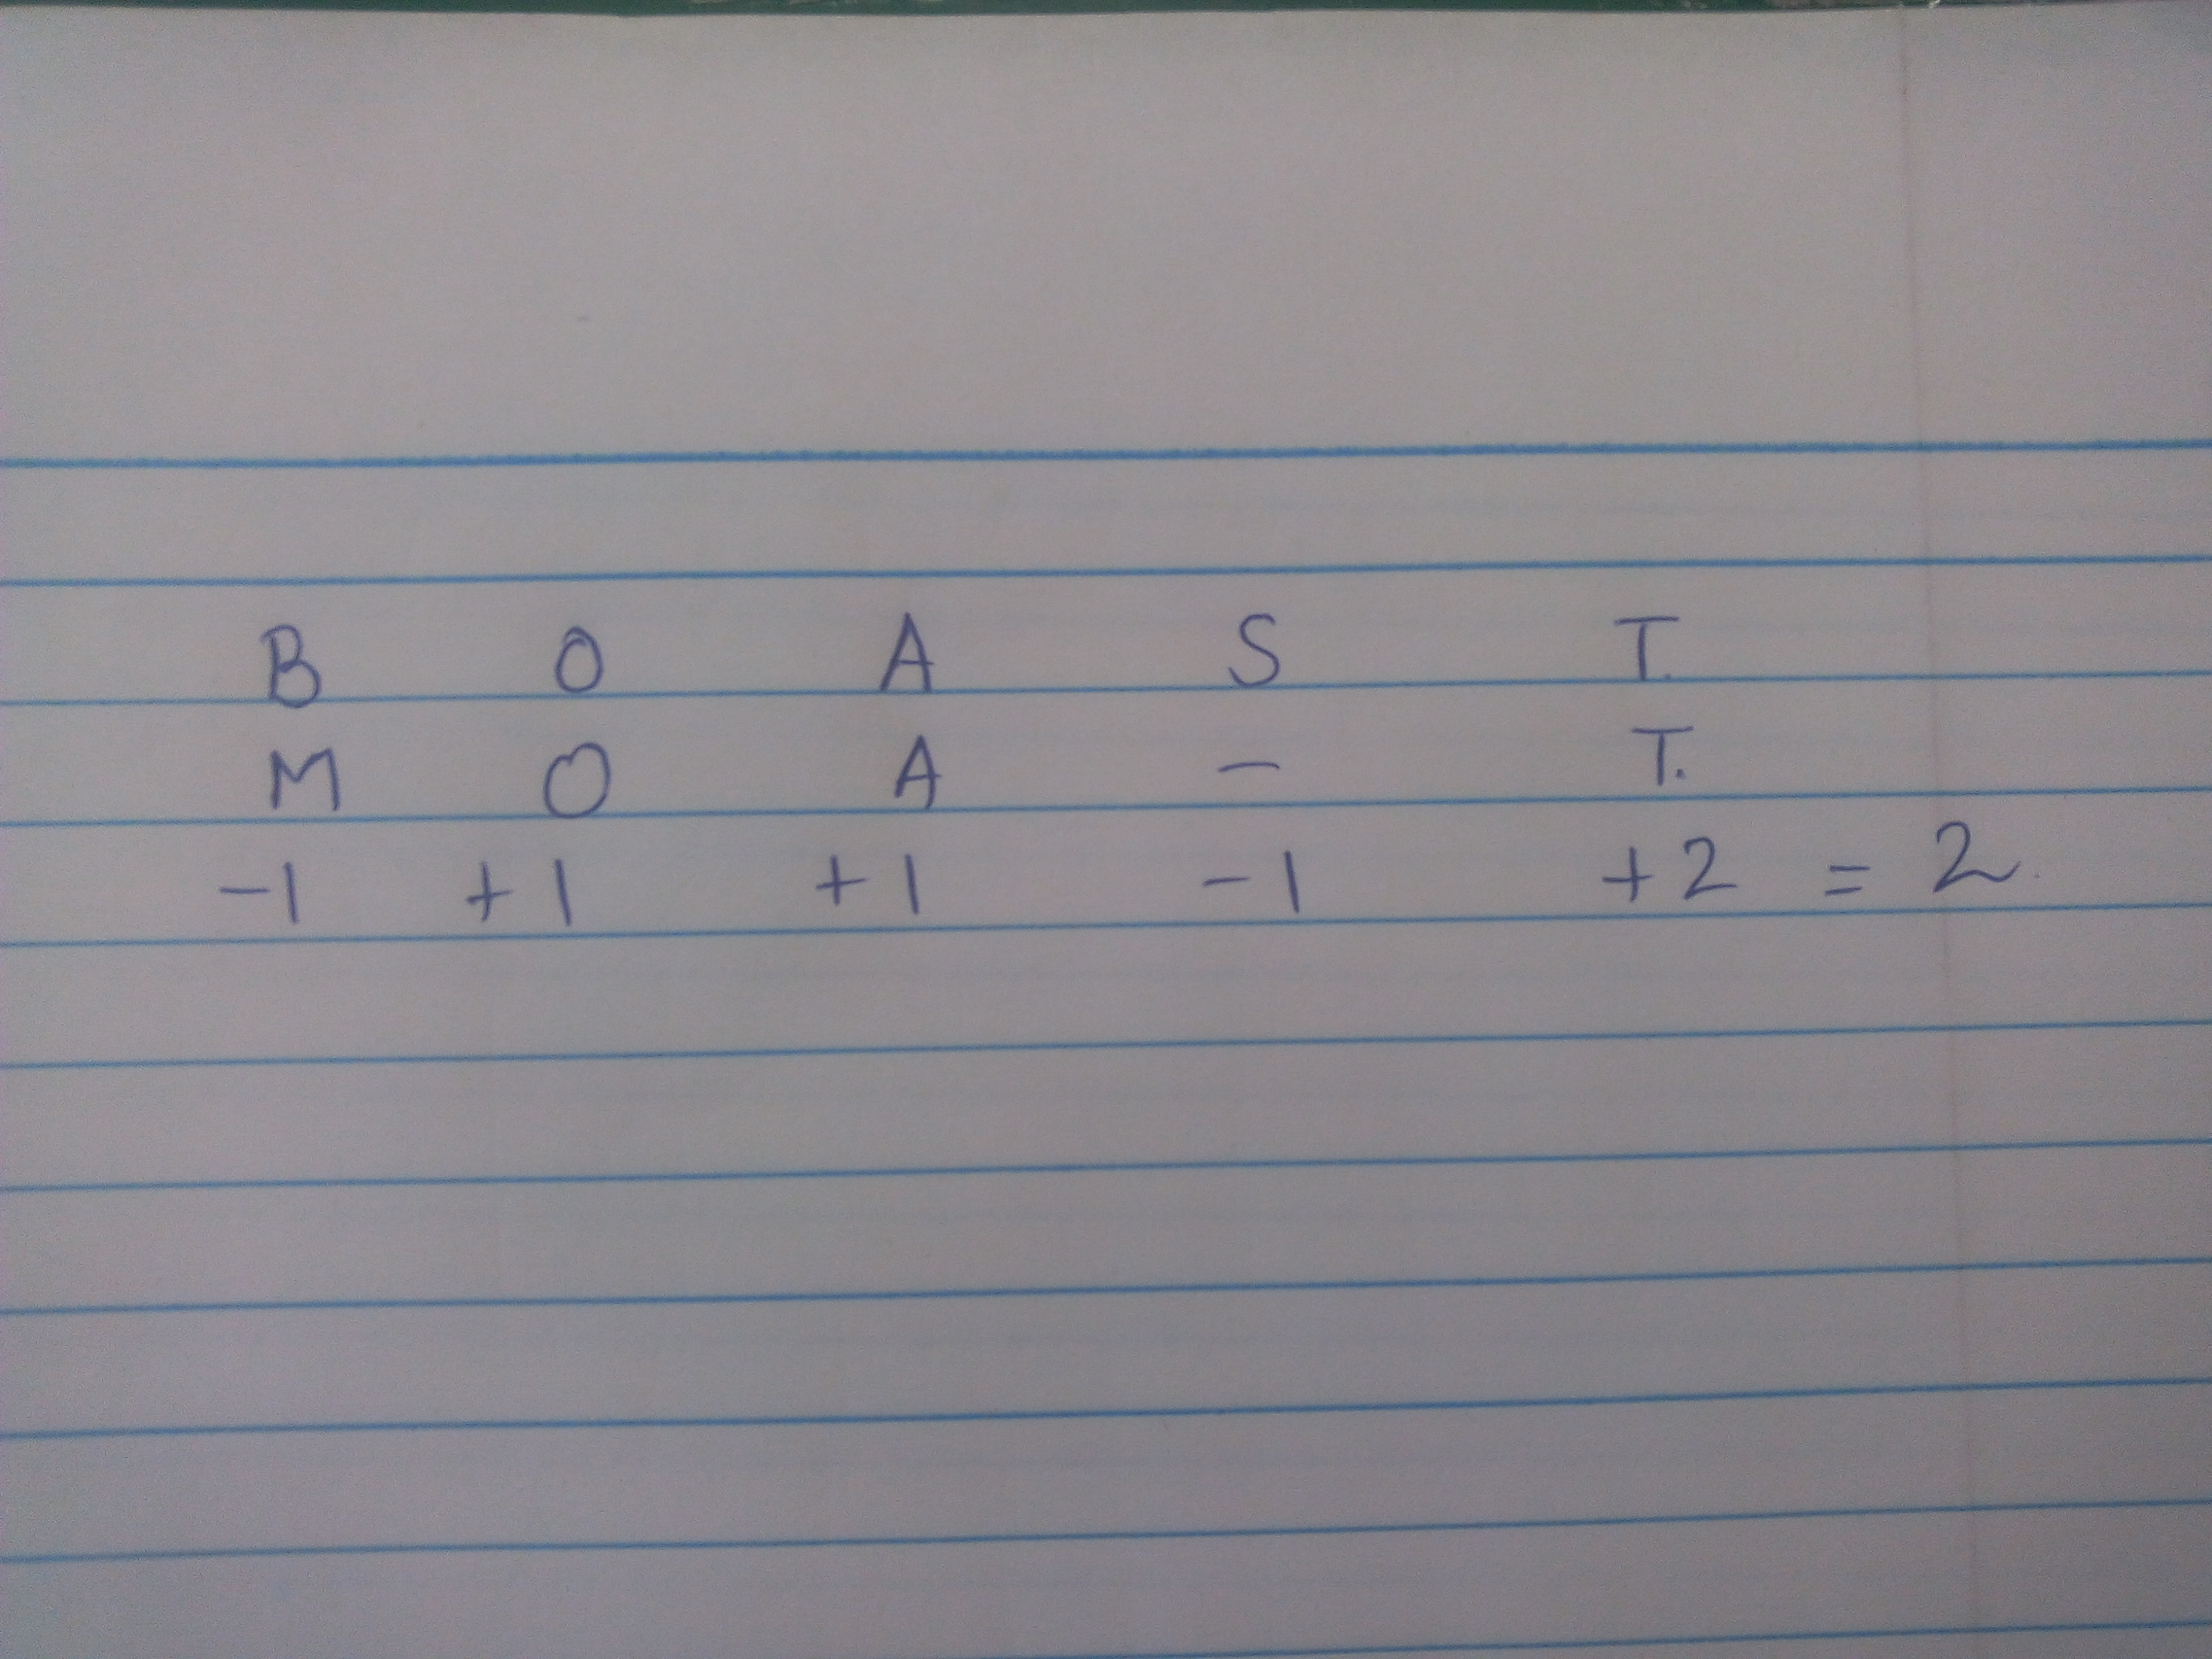 B O A S T.
M O A - T.
-1 +1 +1 -1 +2 = 2.